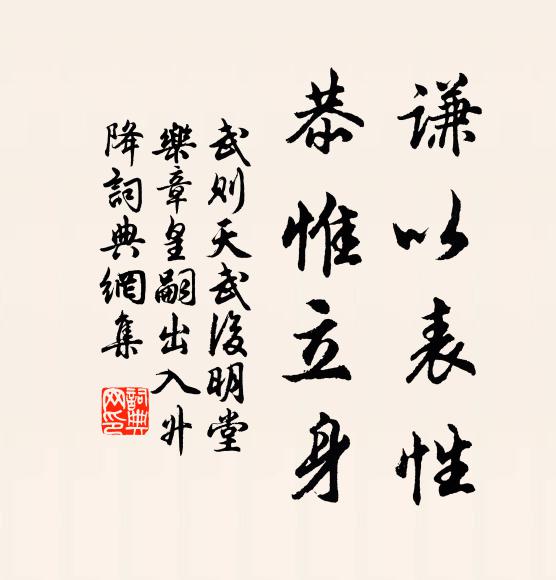 謙以表性
恭惟立身
武則天武後明堂
樂章皇嗣出入升
降詞典網集
詞典
网印